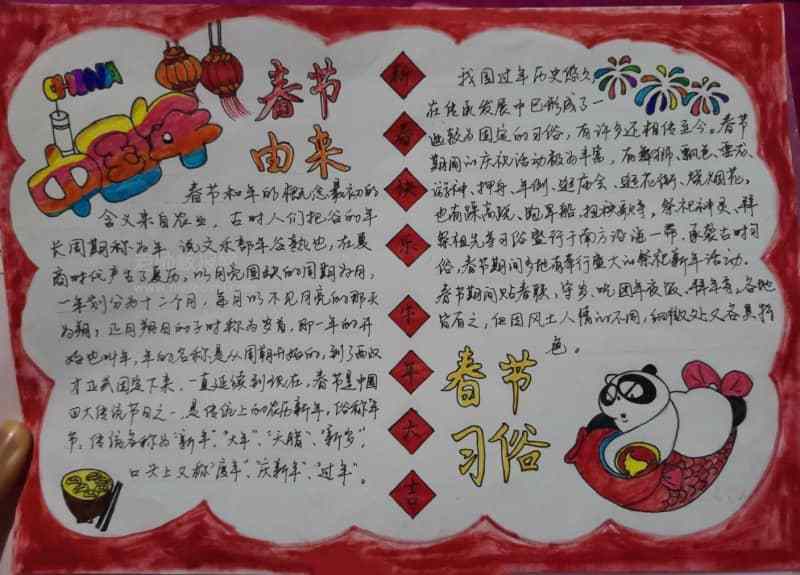 CHINA
中国年
春节
由来
春节和年的概念最初的
含义来自农业,古时人们把谷的年
长周期称为年,说文禾部年谷熟也,在夏
商时代产生了夏历,以月亮圆缺的周期为月,
一年划分为十二个月,每月以不见月亮的那天
为朔,正月朔日的子时称为岁首,即一年的开
始也叫年,年的名称是从周期开始的,到了西汉
才正式固定下来,一直延续到现在,春节是中国
四大传统节日之一,是传统上的农历新年,俗称年
节,传统名称为“新年”、“大年”、“天腊”、“新岁”,
口头上又称“度年”、“庆新年”、“过年”。
新
春
快
乐
牛
年
大
吉
我国过年历史悠久
在传承发展中已形成了一
些较为固定的习俗,有许多还相传至今。春节
期间的庆祝活动极为丰富,有舞狮、飘色、
游神、押舟、年例、逛庙会、逛花街、烧烟花,
也有踩高跷、跑旱船、扭秧歌等,祭祀神灵、拜
祭祖先等习俗盛行于南方沿海一带,承袭古时习
俗,春节期间多地有举行盛大的祭祀新年活动。
春节期间贴春联、守岁、吃团年夜饭、拜年等,各地
皆有之,但因风土人情的不同,细微处又各具特
色。
春节
习俗